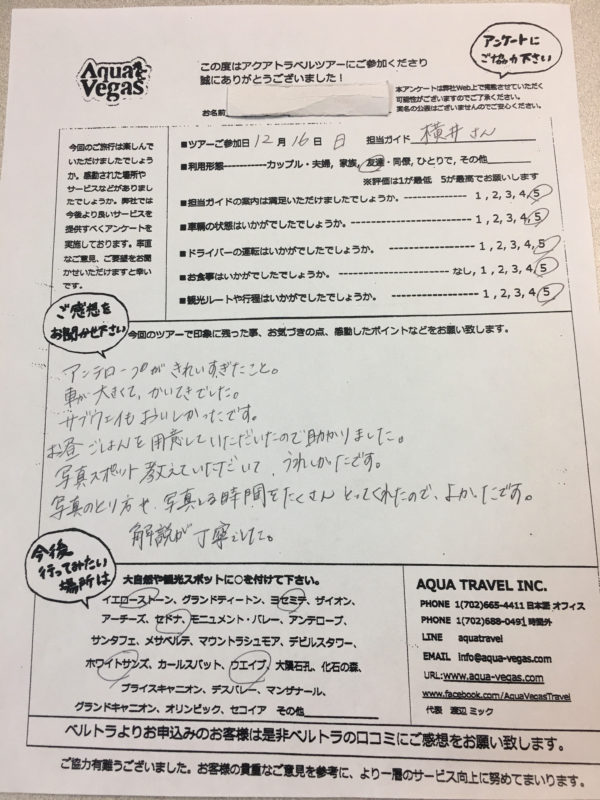 Aqua Vegas
この度はアクアトラベルツアーにご参加くださり
誠にありがとうございました！
アンケートに
ご協力下さい
本アンケートは弊社Web上で掲載させていただく
可能性がございますのでご了承ください。
実名の公表はございませんのでご安心ください。
お名前
今回のご旅行は楽しんで
いただけましたでしょう
か。感動された場所や
サービスなどがありまし
たでしょうか。弊社では
今後より良いサービスを
提供すべくアンケートを
実施しております。率直
なご意見、ご要望をお聞
かせいただけますと幸い
です。
■ツアーご参加日 12月 16日 担当ガイド 横井さん
■利用形態------------カップル・夫婦, 家族, 友達・同僚, ひとりで, その他
※評価は1が最低 5が最高でお願いします
■担当ガイドの案内は満足いただけましたでしょうか。 --------------- 1, 2, 3, 4, 5
■車輌の状態はいかがでしたでしょうか。 ------------------------ 1, 2, 3, 4, 5
■ドライバーの運転はいかがでしたでしょうか。 -------------------- 1, 2, 3, 4, 5
■お食事はいかがでしたでしょうか。 ---------------------- なし, 1, 2, 3, 4, 5
■観光ルートや行程はいかがでしたでしょうか。 -------------------- 1, 2, 3, 4, 5
ご感想を
お聞かせ下さい
今回のツアーで印象に残った事、お気づきの点、感動したポイントなどをお願い致します。
アンテロープがきれいすぎたこと。
車が大きくて、かいてきでした。
サブウェイもおいしかったです。
お昼ごはんを用意していただいたので助かりました。
写真スポット教えていただいて、うれしかったです。
写真のとり方や、写真とる時間をたくさんとってくれたので、よかったです。
解説が丁寧でした。
今後
行ってみたい
場所は
大自然や観光スポットに○を付けて下さい。
イエローストーン、グランドティートン、ヨセミテ、ザイオン、
アーチーズ、セドナ、モニュメント・バレー、アンテロープ、
サンタフェ、メサベルデ、マウントラシュモア、デビルスタワー、
ホワイトサンズ、カールスバット、ウエイブ、大隕石孔、化石の森、
ブライスキャニオン、デスバレー、マンザナール、
グランドキャニオン、オリンピック、セコイア その他
AQUA TRAVEL INC.
PHONE 1(702)665-4411 日本語 オフィス
PHONE 1(702)688-0491 時間外
LINE aquatravel
EMAIL info@aqua-vegas.com
URL:www.aqua-vegas.com
www.facebook.com/AquaVegasTravel
代表 渡辺 ミック
ベルトラよりお申込みのお客様は是非ベルトラの口コミにご感想をお願い致します。
ご協力有難うございました。お客様の貴重なご意見を参考に、より一層のサービス向上に努めてまいります。